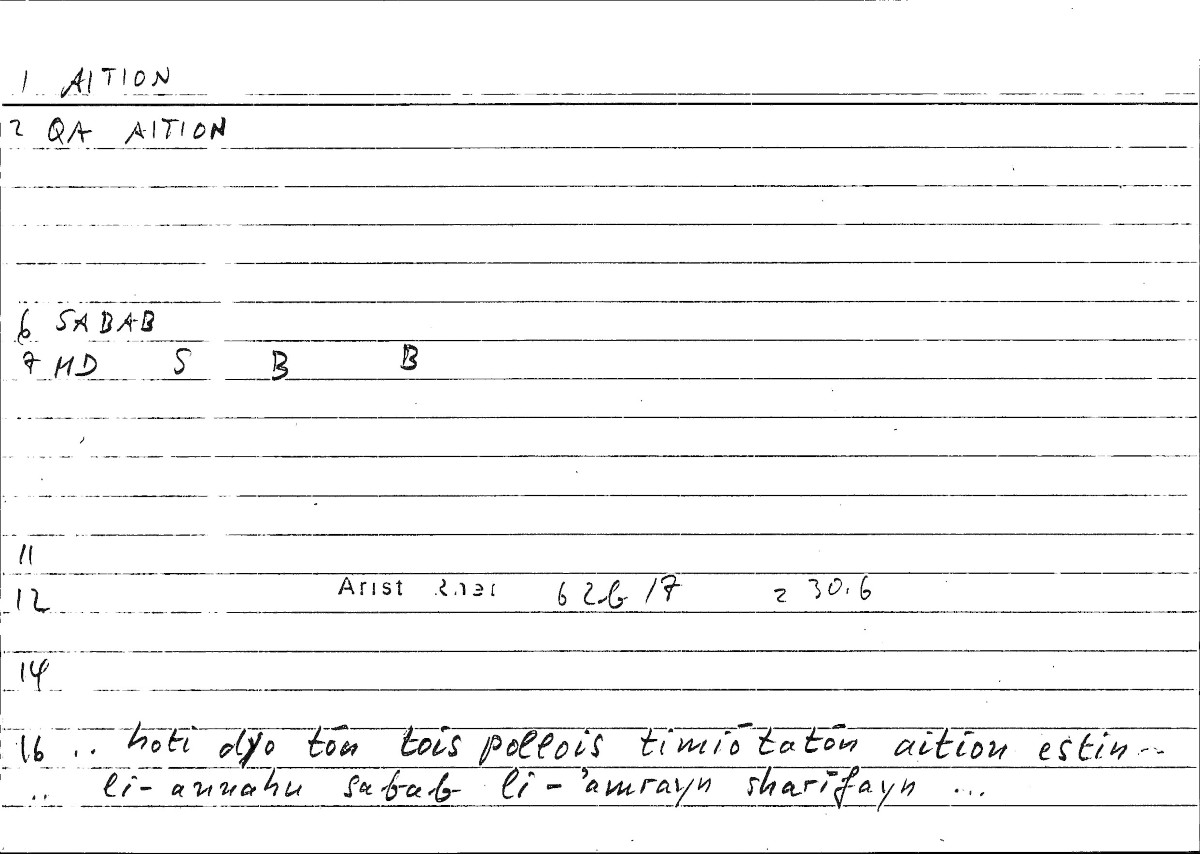 1 AITION
2 QA AITION
6 SABAB
7 MD S B B
11
12 Arist 62b17 230.6
14
16 .. hoti dyo tōn tois pollois timiōtatōn aition estin ..
.. li-annahu sabab li-'amrayn sharīfayn ...